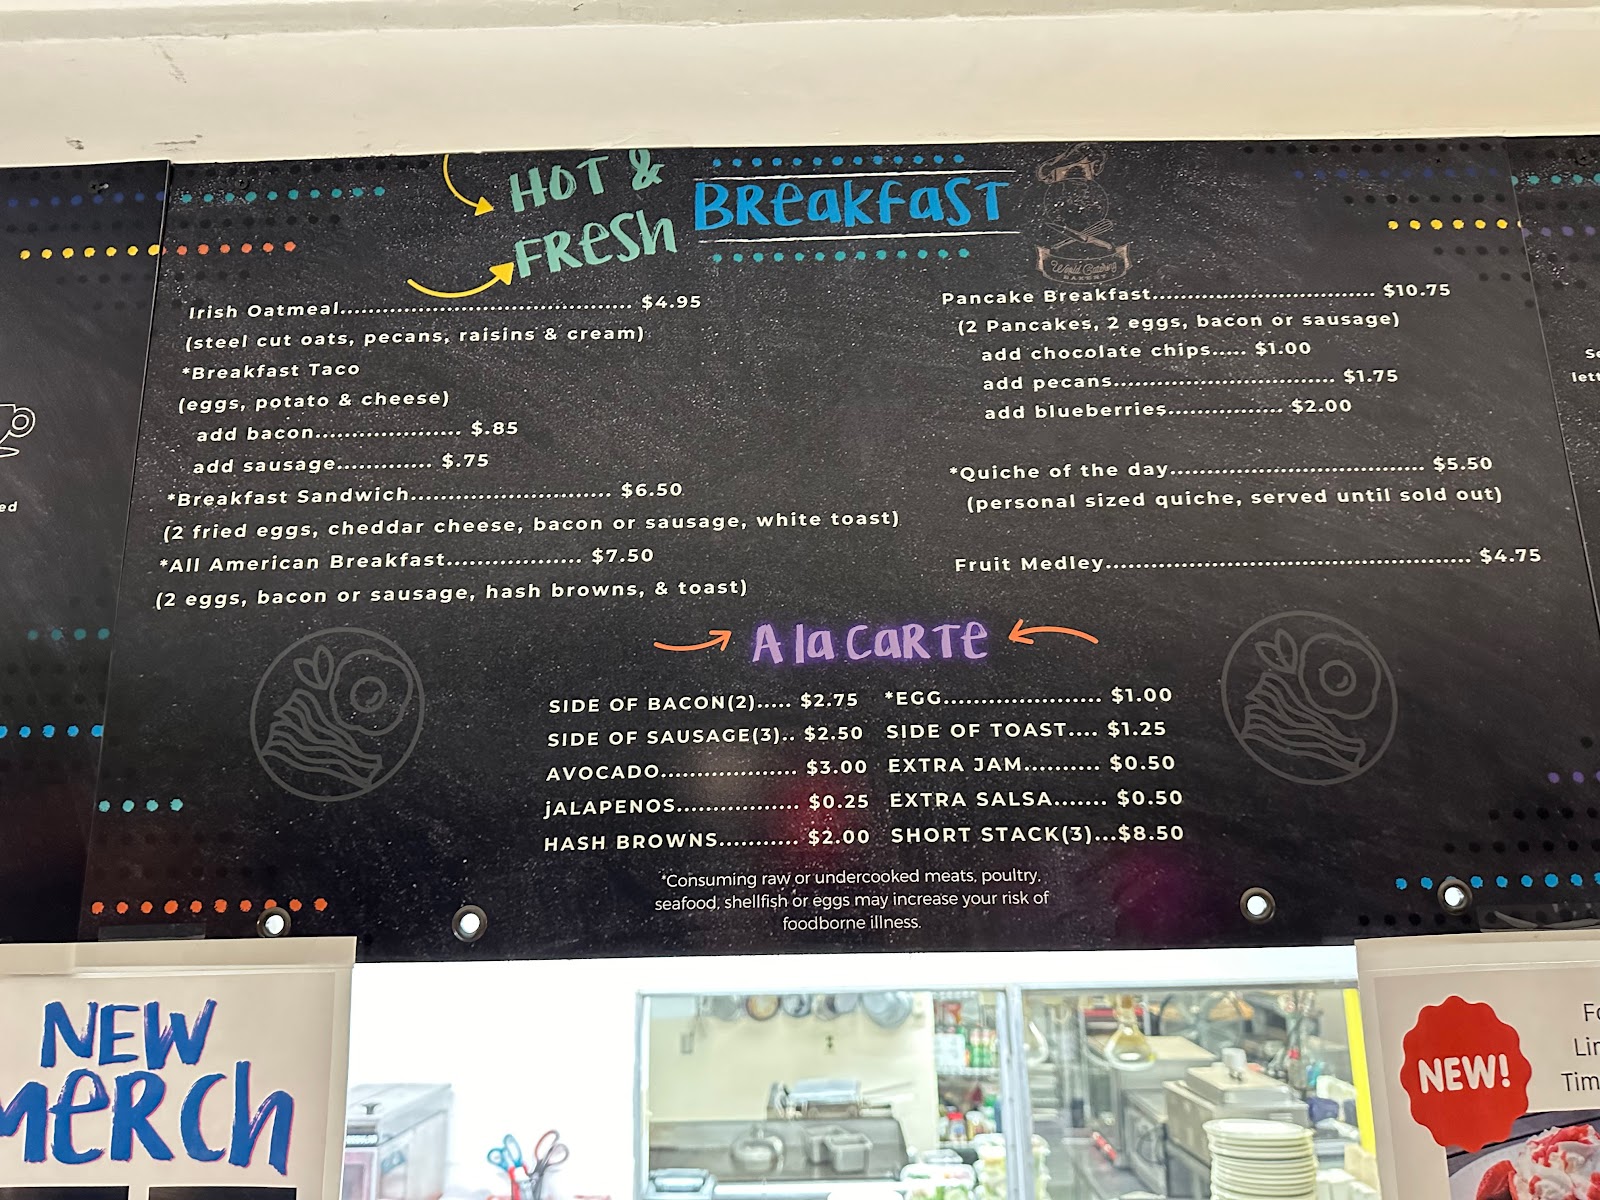 HOT &
FRESH
BREAKFAST
World Catering
BAKERY
Irish Oatmeal................................... $4.95
(steel cut oats, pecans, raisins & cream)
*Breakfast Taco
(eggs, potato & cheese)
add bacon..................... $.85
add sausage............. $.75
*Breakfast Sandwich........................... $6.50
(2 fried eggs, cheddar cheese, bacon or sausage, white toast)
*All American Breakfast.................. $7.50
(2 eggs, bacon or sausage, hash browns, & toast)
Pancake Breakfast............................... $10.75
(2 Pancakes, 2 eggs, bacon or sausage)
add chocolate chips..... $1.00
add pecans............................... $1.75
add blueberries................ $2.00
*Quiche of the day................................... $5.50
(personal sized quiche, served until sold out)
Fruit Medley.................................................. $4.75
A la CARTE
SIDE OF BACON(2)..... $2.75
SIDE OF SAUSAGE(3).. $2.50
AVOCADO................... $3.00
jALAPENOS................. $0.25
HASH BROWNS........... $2.00
*EGG...................... $1.00
SIDE OF TOAST.... $1.25
EXTRA JAM.......... $0.50
EXTRA SALSA....... $0.50
SHORT STACK(3)...$8.50
*Consuming raw or undercooked meats, poultry,
seafood, shellfish or eggs may increase your risk of
foodborne illness.
NEW
MERCH
NEW!